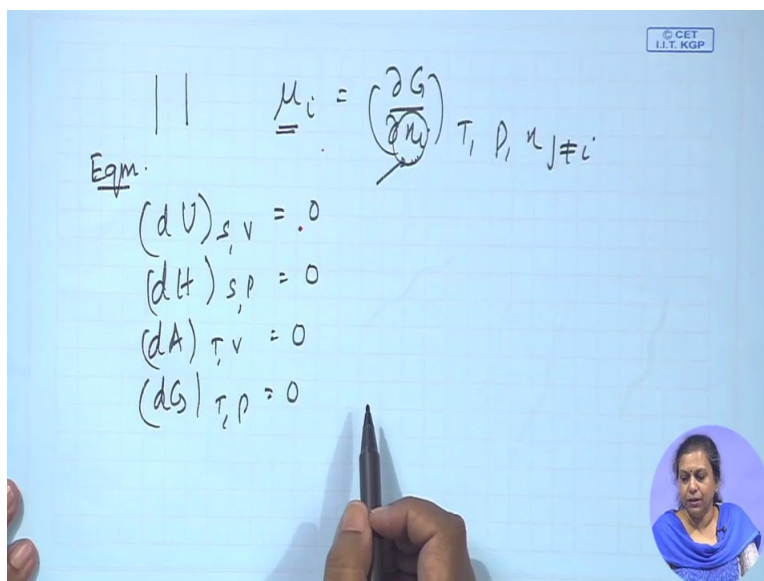 © CET
I.I.T. KGP
μi = (∂G/∂ni) T, P, nj≠i
Eqm.
(dU)S,V = 0
(dH)S,P = 0
(dA)T,V = 0
(dG)T,P = 0